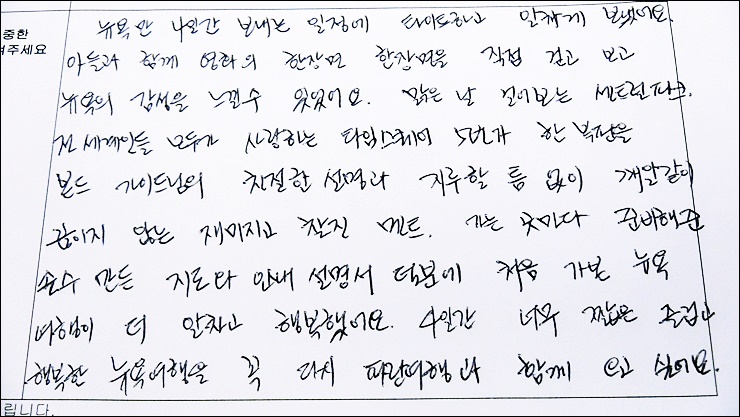 중한
겨주세요
뉴욕만 4일간 보내는 일정에 타이트하고 알차게 보냈어요.
아들과 함께 영화의 한장면 한장면을 직접 걷고 보고
뉴욕의 감성을 느낄수 있었어요. 맑은 날 걸어보는 센트럴파크.
전 세계인들 모두가 사랑하는 타임스퀘어 5번가 한 복판을
본드 가이드님의 친절한 설명과 지루할 틈 없이 깨알같이
끊이지 않는 재미지고 찰진 멘트. 가는 곳마다 준비해준
손수 만든 지도와 안내 설명서 덕분에 처음 가본 뉴욕
여행이 더 알차고 행복했어요. 4일간 너무 짧은 즐겁고
행복한 뉴욕여행을 꼭 다시 파란여행과 함께 하고 싶어요.
립니다.